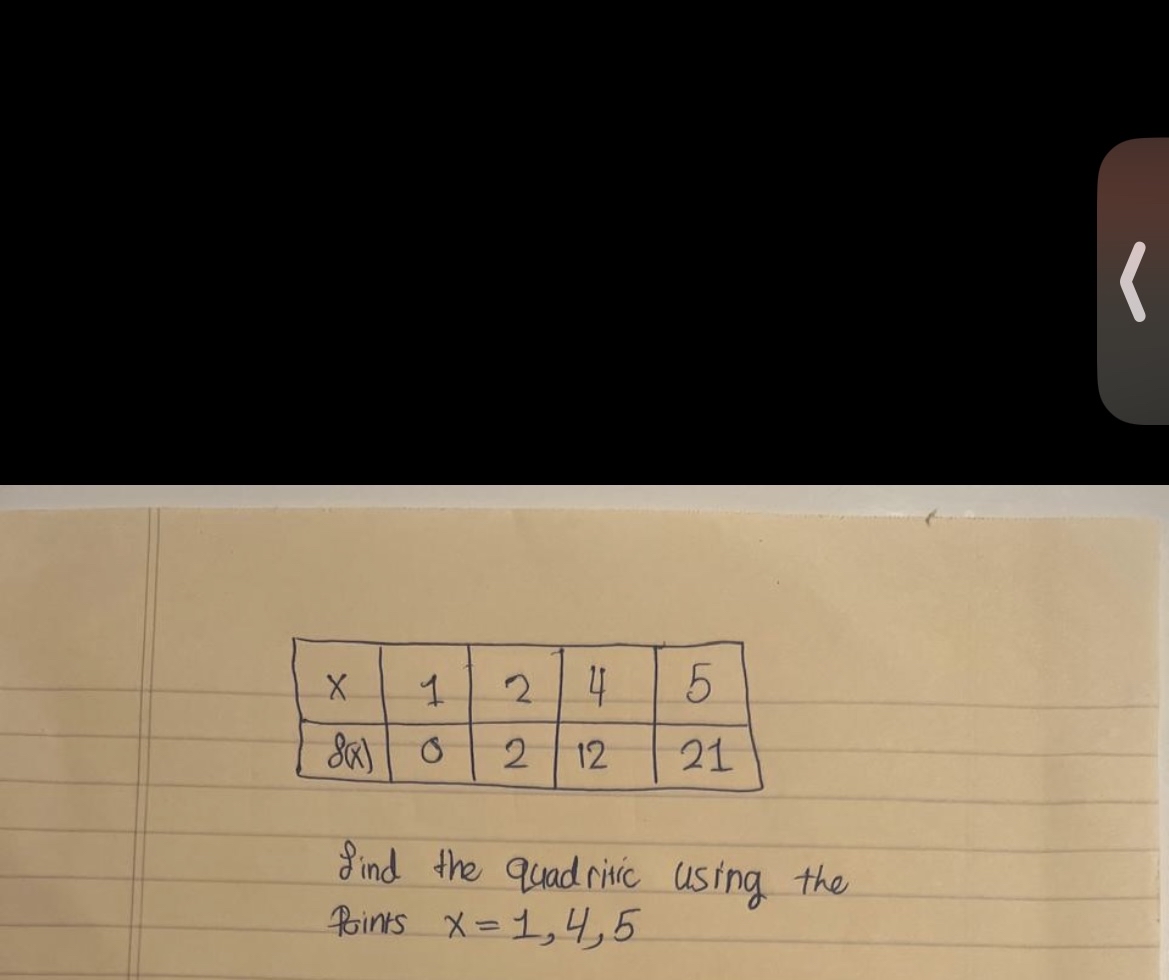 x 1 2 4 5
f(x) 0 2 12 21
find the quadritic using the
Points x = 1, 4, 5